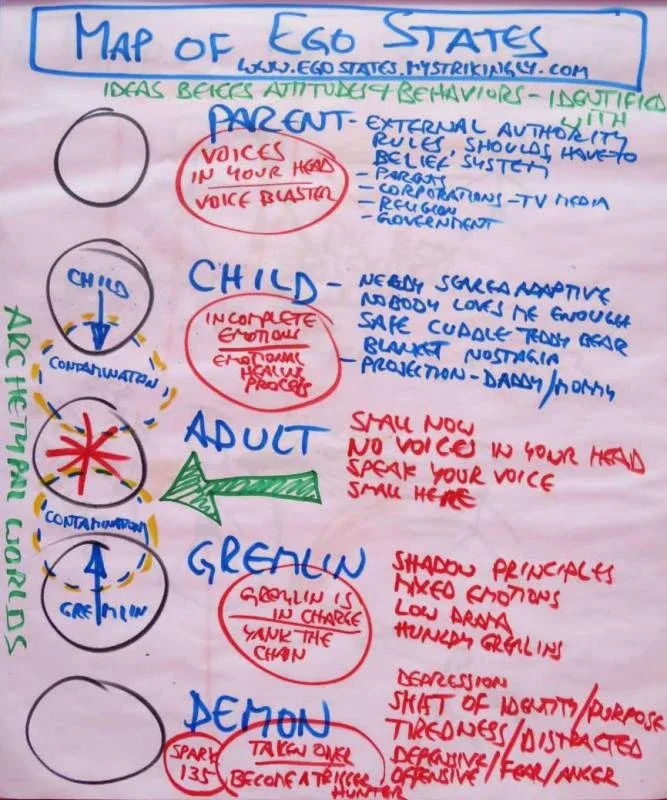 MAP OF EGO STATES
WWW.EGOSTATES.MYSTRIKINGLY.COM
IDEAS BELIEFS ATTITUDES + BEHAVIORS - IDENTIFIED
WITH
PARENT - EXTERNAL AUTHORITY
RULES, SHOULDS HAVE-TO
BELIEF SYSTEM
- PARENTS
- CORPORATIONS - TV MEDIA
- RELIGION
- GOVERNMENT
VOICES
IN YOUR HEAD
VOICE BLASTER
CHILD
CHILD - NEEDY SCARED ADAPTIVE
NOBODY LOVES ME ENOUGH
SAFE CUDDLE TEDDY BEAR
BLANKET NOSTAGIA
- PROJECTION - DADDY/MOMMY
INCOMPLETE
EMOTIONS
EMOTIONAL
HEALING
PROCESS
CONTAMINATION
ARCHETYPAL WORLDS
ADULT
SMALL NOW
NO VOICES IN YOUR HEAD
SPEAK YOUR VOICE
SMALL HERE
CONTAMINATION
GREMLIN
GREMLIN
SHADOW PRINCIPLES
MIXED EMOTIONS
LOW DRAMA
HUNGRY GREMLINS
GREMLIN IS
IN CHARGE
YANK THE
CHAIN
DEMON
DEPRESSION
SHIFT OF IDENTITY/PURPOSE
TIREDNESS/DISTRACTED
DEFENSIVE/
OFFENSIVE/FEAR/ANGER
SPARK
135
TAKEN OVER
BECOME A TRIGGER
HUNTER